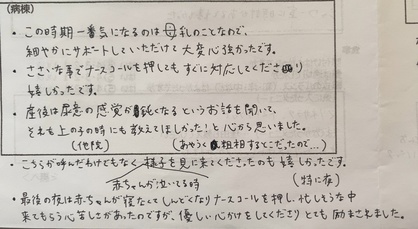 (病棟)
・この時期一番気になるのは母乳のことなので、
細やかにサポートしていただけて大変心強かったです。
・ささいな事でナースコールを押してもすぐに対応してくださり
嬉しかったです。
・産後は尿意の感覚が鈍くなるというお話を聞いて、
それも上の子の時にも教えてほしかった!と心から思いました。
(他院) (あやうく粗相するとこだったので…)
・こちらが呼んだわけでもなく様子を見に来てくださったのも嬉しかったです。
赤ちゃんが泣いてる時 (特に夜)
・最後の夜は赤ちゃんが寝なくてしんどくなりナースコールを押し、忙しそうな中
来てもらう心苦しさがあったのですが、優しい心かけをしてくださりとても励まされました。